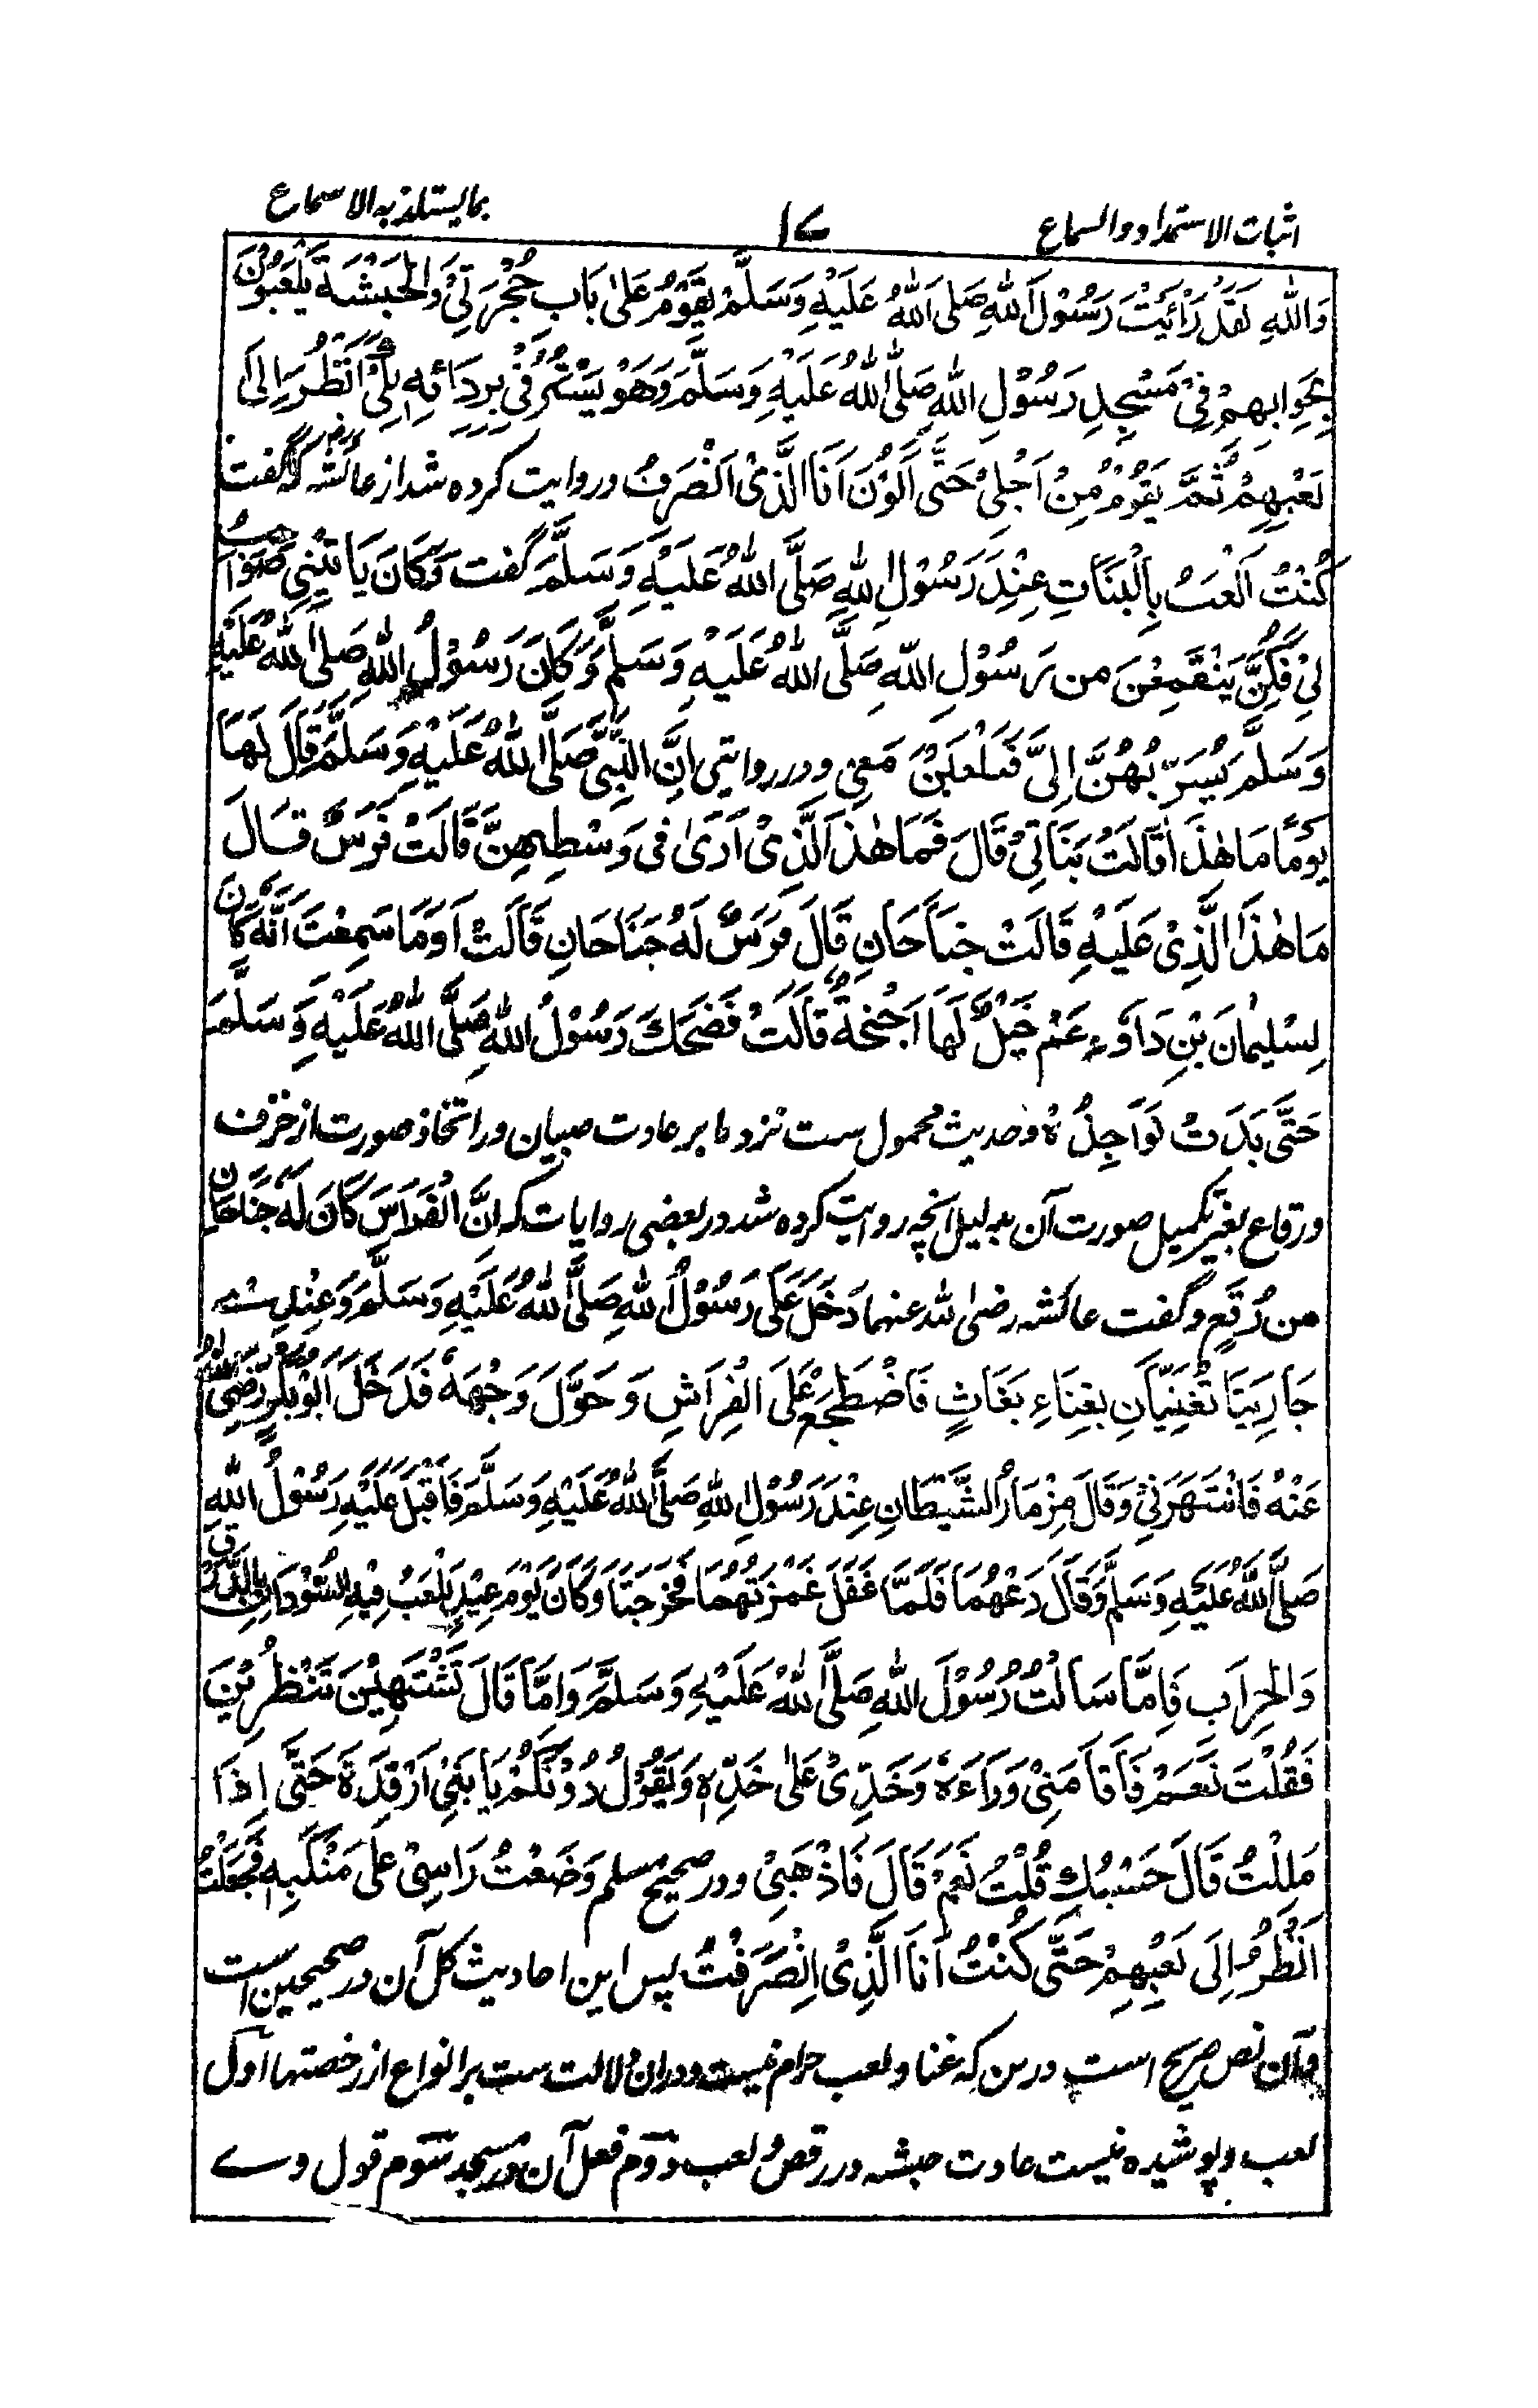 اثبات الاستمداد والسماع ۱۷ بما یستلذ به الاسماع
وَاللّٰهِ لَقَدْ رَأَيْتُ رَسُوْلَ اللّٰهِ صَلَّى اللّٰهُ عَلَيْهِ وَسَلَّمَ يَقُوْمُ عَلٰى بَابِ حُجْرَتِيْ وَالْحَبْشَةُ يَلْعَبُوْنَ
بِحِرَابِهِمْ فِيْ مَسْجِدِ رَسُوْلِ اللّٰهِ صَلَّى اللّٰهُ عَلَيْهِ وَسَلَّمَ وَهُوَ يَسْتُرُنِيْ بِرِدَائِهِ لِكَيْ اَنْظُرَ اِلٰى
لَعْبِهِمْ ثُمَّ يَقُوْمُ مِنْ اَجْلِيْ حَتّٰى اَكُوْنَ اَنَا الَّذِيْ اَنْصَرِفُ وروایت کرده شد از عائشہ رض کہ گفت
كُنْتُ اَلْعَبُ بِالْبَنَاتِ عِنْدَ رَسُوْلِ اللّٰهِ صَلَّى اللّٰهُ عَلَيْهِ وَسَلَّمَ گفت وَكَانَ يَاتِيْنِيْ صَوَاحِبُ
لِيْ فَكُنَّ يَنْقَمِعْنَ من رَسُوْلِ اللّٰهِ صَلَّى اللّٰهُ عَلَيْهِ وَسَلَّمَ وَكَانَ رَسُوْلُ اللّٰهِ صَلَّى اللّٰهُ عَلَيْهِ
وَسَلَّمَ يُسَرِّبُهُنَّ اِلَيَّ فَيَلْعَبْنَ مَعِيْ ودر روایتی اِنَّ النَّبِيَّ صَلَّى اللّٰهُ عَلَيْهِ وَسَلَّمَ قَالَ لَهَا
يَوْمًا مَا هٰذَا قَالَتْ بَنَاتِيْ قَالَ فَمَا هٰذَا الَّذِيْ اَرٰى فِيْ وَسْطِهِنَّ قَالَتْ فَرَسٌ قَالَ
مَا هٰذَا الَّذِيْ عَلَيْهِ قَالَتْ جَنَاحَانِ قَالَ فَرَسٌ لَهُ جَنَاحَانِ قَالَتْ اَوَمَا سَمِعْتَ اَنَّهُ كَانَ
لِسُلَيْمَانَ بْنِ دَاوٗدَ عم خَيْلٌ لَهَا اَجْنِحَةٌ قَالَتْ فَضَحِكَ رَسُوْلُ اللّٰهِ صَلَّى اللّٰهُ عَلَيْهِ وَسَلَّمَ
حَتّٰى بَدَتْ نَوَاجِذُهُ وحدیث محمول ست نزد ما بر عادت صبیان در اتخاذ صورت از خزف
ورقاع بغیر تکمیل صورت آن بدلیل آنچه روایت کرده شد در بعضی روایات که اِنَّ الْفَرَسَ كَانَ لَهُ جَنَاحَانِ
من رُقَعٍ وگفت عائشہ رضی الله عنها دَخَلَ عَلَيَّ رَسُوْلُ اللّٰهِ صَلَّى اللّٰهُ عَلَيْهِ وَسَلَّمَ وَعِنْدِيْ
جَارِيَتَا تُغَنِّيَانِ بِغِنَاءِ بُغَاثٍ فَاضْطَجَعَ عَلَى الْفِرَاشِ وَحَوَّلَ وَجْهَهُ فَدَخَلَ اَبُوْبَكْرٍ رَضِيَ اللّٰهُ
عَنْهُ فَانْتَهَرَنِيْ وَقَالَ مِزْمَارُ الشَّيْطَانِ عِنْدَ رَسُوْلِ اللّٰهِ صَلَّى اللّٰهُ عَلَيْهِ وَسَلَّمَ فَاَقْبَلَ عَلَيْهِ رَسُوْلُ اللّٰهِ
صَلَّى اللّٰهُ عَلَيْهِ وَسَلَّمَ وَقَالَ دَعْهُمَا فَلَمَّا غَفَلَ غَمَزْتُهُمَا فَخَرَجَتَا وَكَانَ يَوْمَ عِيْدٍ يَلْعَبُ فِيْهِ السُّوْدَانُ بِالدَّرَقِ
وَالْحِرَابِ فَاِمَّا سَاَلْتُ رَسُوْلَ اللّٰهِ صَلَّى اللّٰهُ عَلَيْهِ وَسَلَّمَ وَاِمَّا قَالَ تَشْتَهِيْنَ تَنْظُرِيْنَ
فَقُلْتُ نَعَمْ فَاَقَامَنِيْ وَرَاءَهُ وَخَدِّيْ عَلٰى خَدِّهِ وَيَقُوْلُ دُوْنَكُمْ يَا بَنِيْ اَرْفِدَةَ حَتّٰى اِذَا
مَلِلْتُ قَالَ حَسْبُكِ قُلْتُ نَعَمْ قَالَ فَاذْهَبِيْ ودر صحیح مسلم وَضَعْتُ رَاسِيْ عَلٰى مَنْكِبِهِ فَجَعَلْتُ
اَنْظُرُ اِلٰى لَعْبِهِمْ حَتّٰى كُنْتُ اَنَا الَّذِيْ اِنْصَرَفْتُ پس این احادیث کل آن در صحیحین است
وآن نص صریح است درین که غنا ولعب حرام نیست ودران دلالت ست بر انواع از رخصتها اول
لعب وپوشیده نیست عادت حبشه در رقص ولعب دوم فعل آن در مسجد سوم قول وے